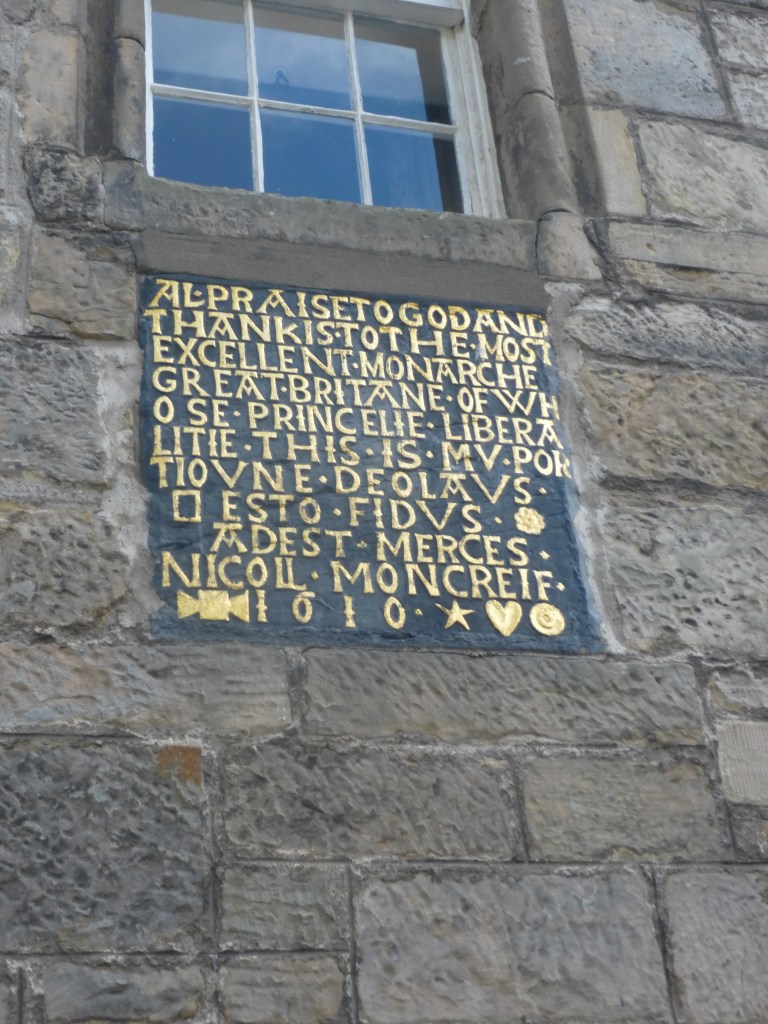 AL·PRAISE TO GOD AND
THANKIS·TO THE·MOST
EXCELLENT·MONARCHE
GREAT·BRITANE·OF WH
OSE·PRINCELIE·LIBERA
LITIE·THIS·IS·MV·POR
TIOVNE·DEOLAVS·
ESTO·FIDVS·
ADEST·MERCES·
NICOLL·MONCREIF·
1610·